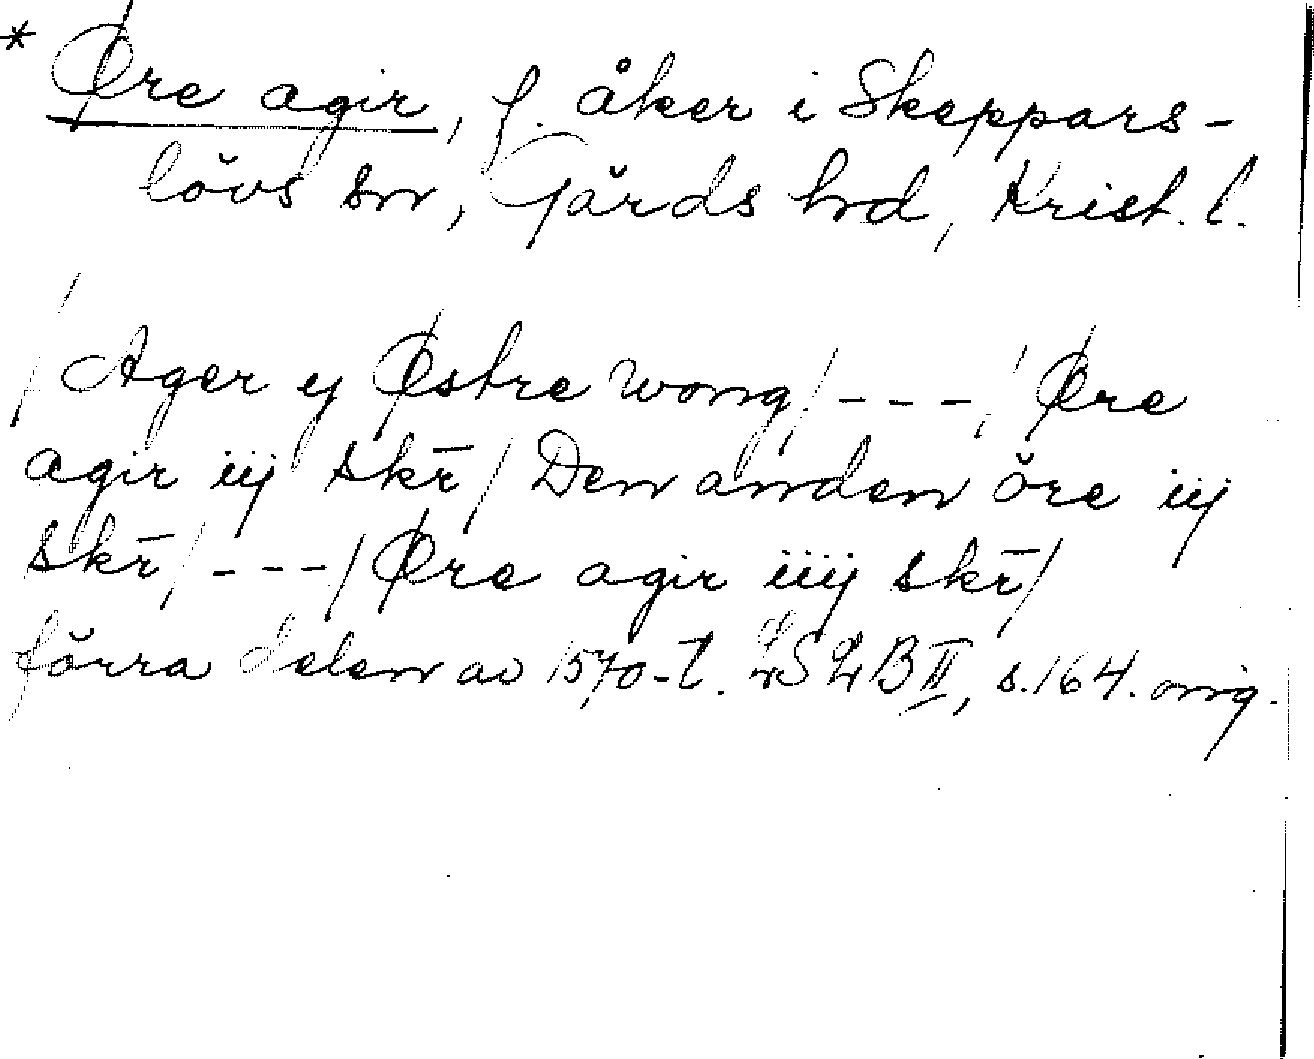 * Øre agir, f. åker i Skeppars-
lövs sn, Gärds hd, Krist. l.
/Ager y Østre wong/---/Øre
agir iij skr̄/Den anden öre iij
skr̄/---/Øre agir iiij skr̄/
förra delen av 1570-t. LSLB II, s.164. orig.